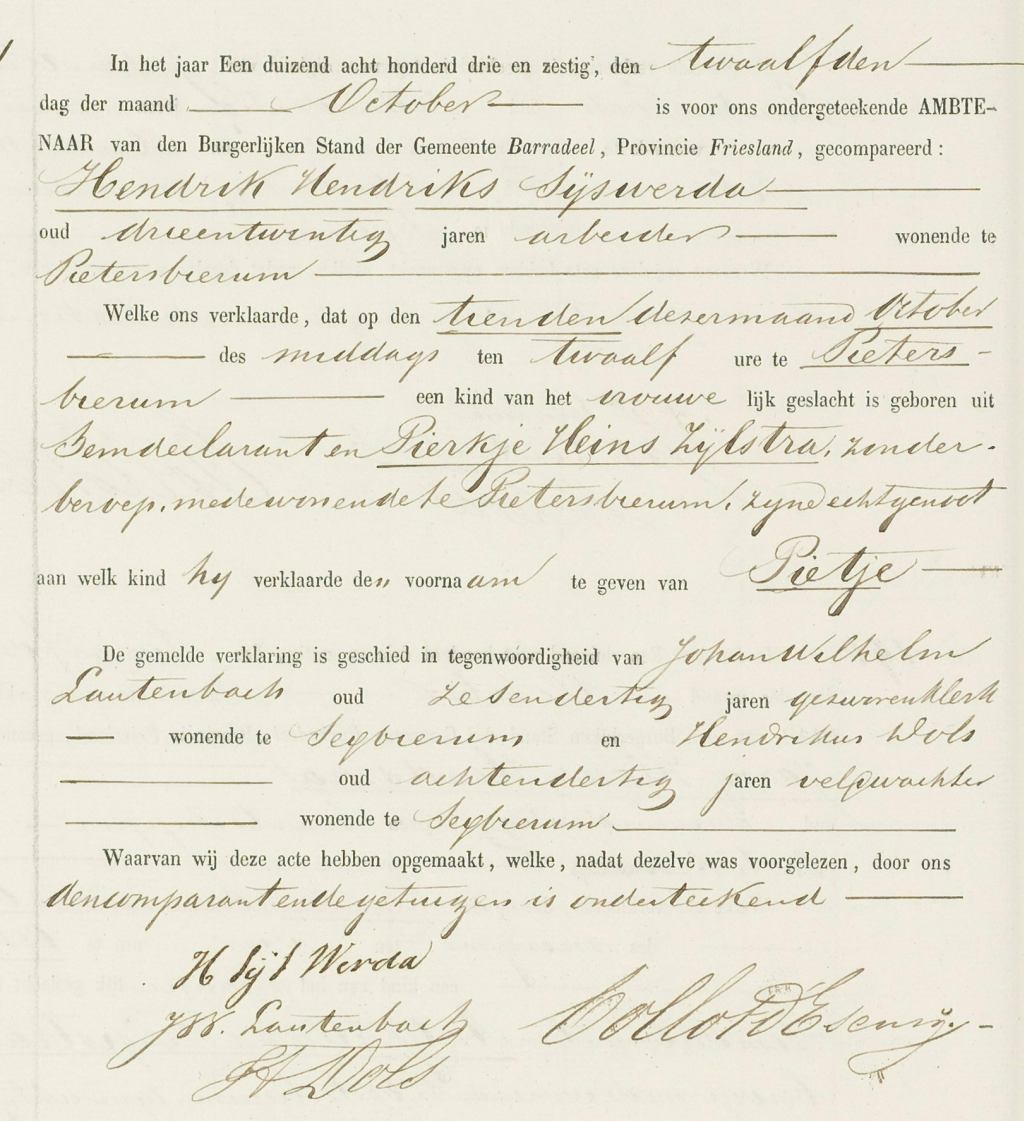 In het jaar Een duizend acht honderd drie en zestig, den twaalfden
dag der maand October is voor ons ondergeteekende AMBTE-
NAAR van den Burgerlijken Stand der Gemeente Barradeel, Provincie Friesland, gecompareerd:
Hendrik Hendriks Sijswerda
oud drieentwintig jaren arbeider wonende te
Pietersbierum
Welke ons verklaarde, dat op den tienden dezer maand October
des middags ten twaalf ure te Pieters-
bierum een kind van het vrouwe lijk geslacht is geboren uit
hem declarant en Pierkje Heins Zijlstra, zonder
beroep, mede wonende te Pietersbierum, zyne echtgenoot
aan welk kind hy verklaarde den voornaam te geven van Pietje
De gemelde verklaring is geschied in tegenwoordigheid van Johan Wilhelm
Lautenbach oud zesendertig jaren gezworen klerk
wonende te Sexbierum en Hendrikus Dols
oud achtendertig jaren veldwachter
wonende te Sexbierum
Waarvan wij deze acte hebben opgemaakt, welke, nadat dezelve was voorgelezen, door ons
den comparant en de getuigen is onderteekend
H Sijswerda
JW. Lautenbach Collot D'Escury
H Dols